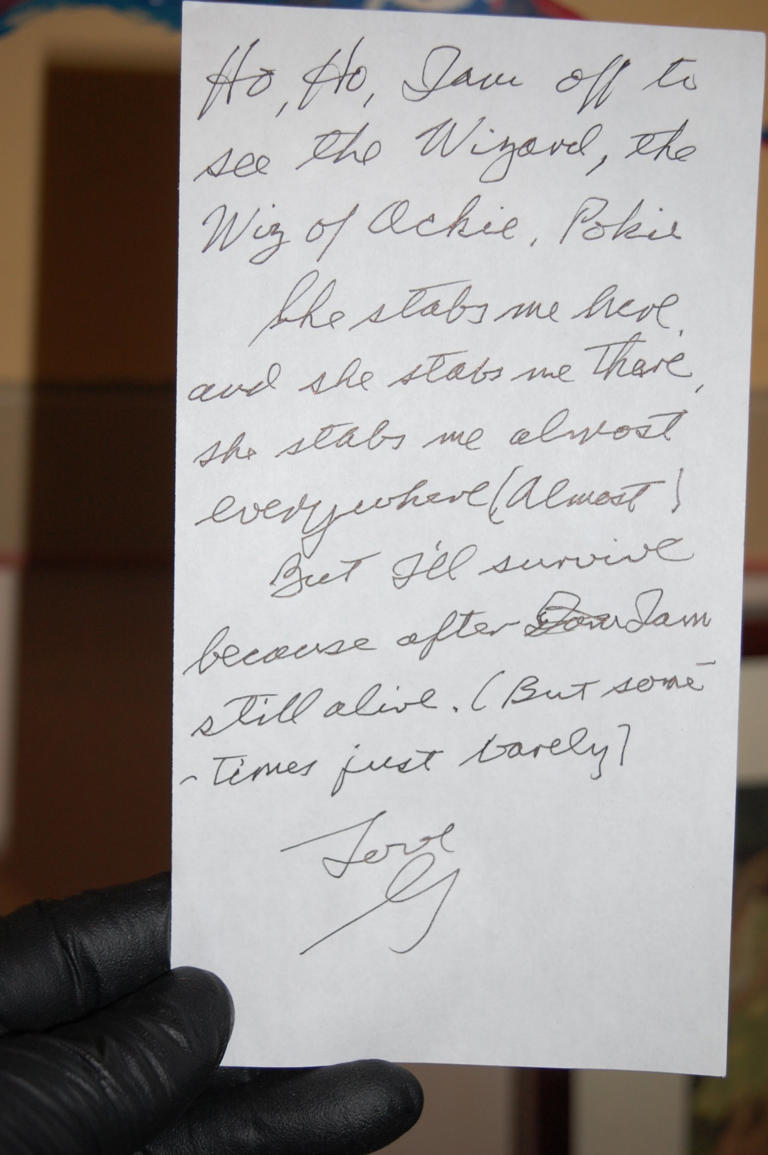 Ho, Ho, I am off to
see the Wizard, the
Wiz of Ockie, Pokie
She stabs me here,
and she stabs me there,
she stabs me almost
everywhere (Almost)
But I'll survive
because after I am
still alive. (But some-
-times just barely)
Love
G